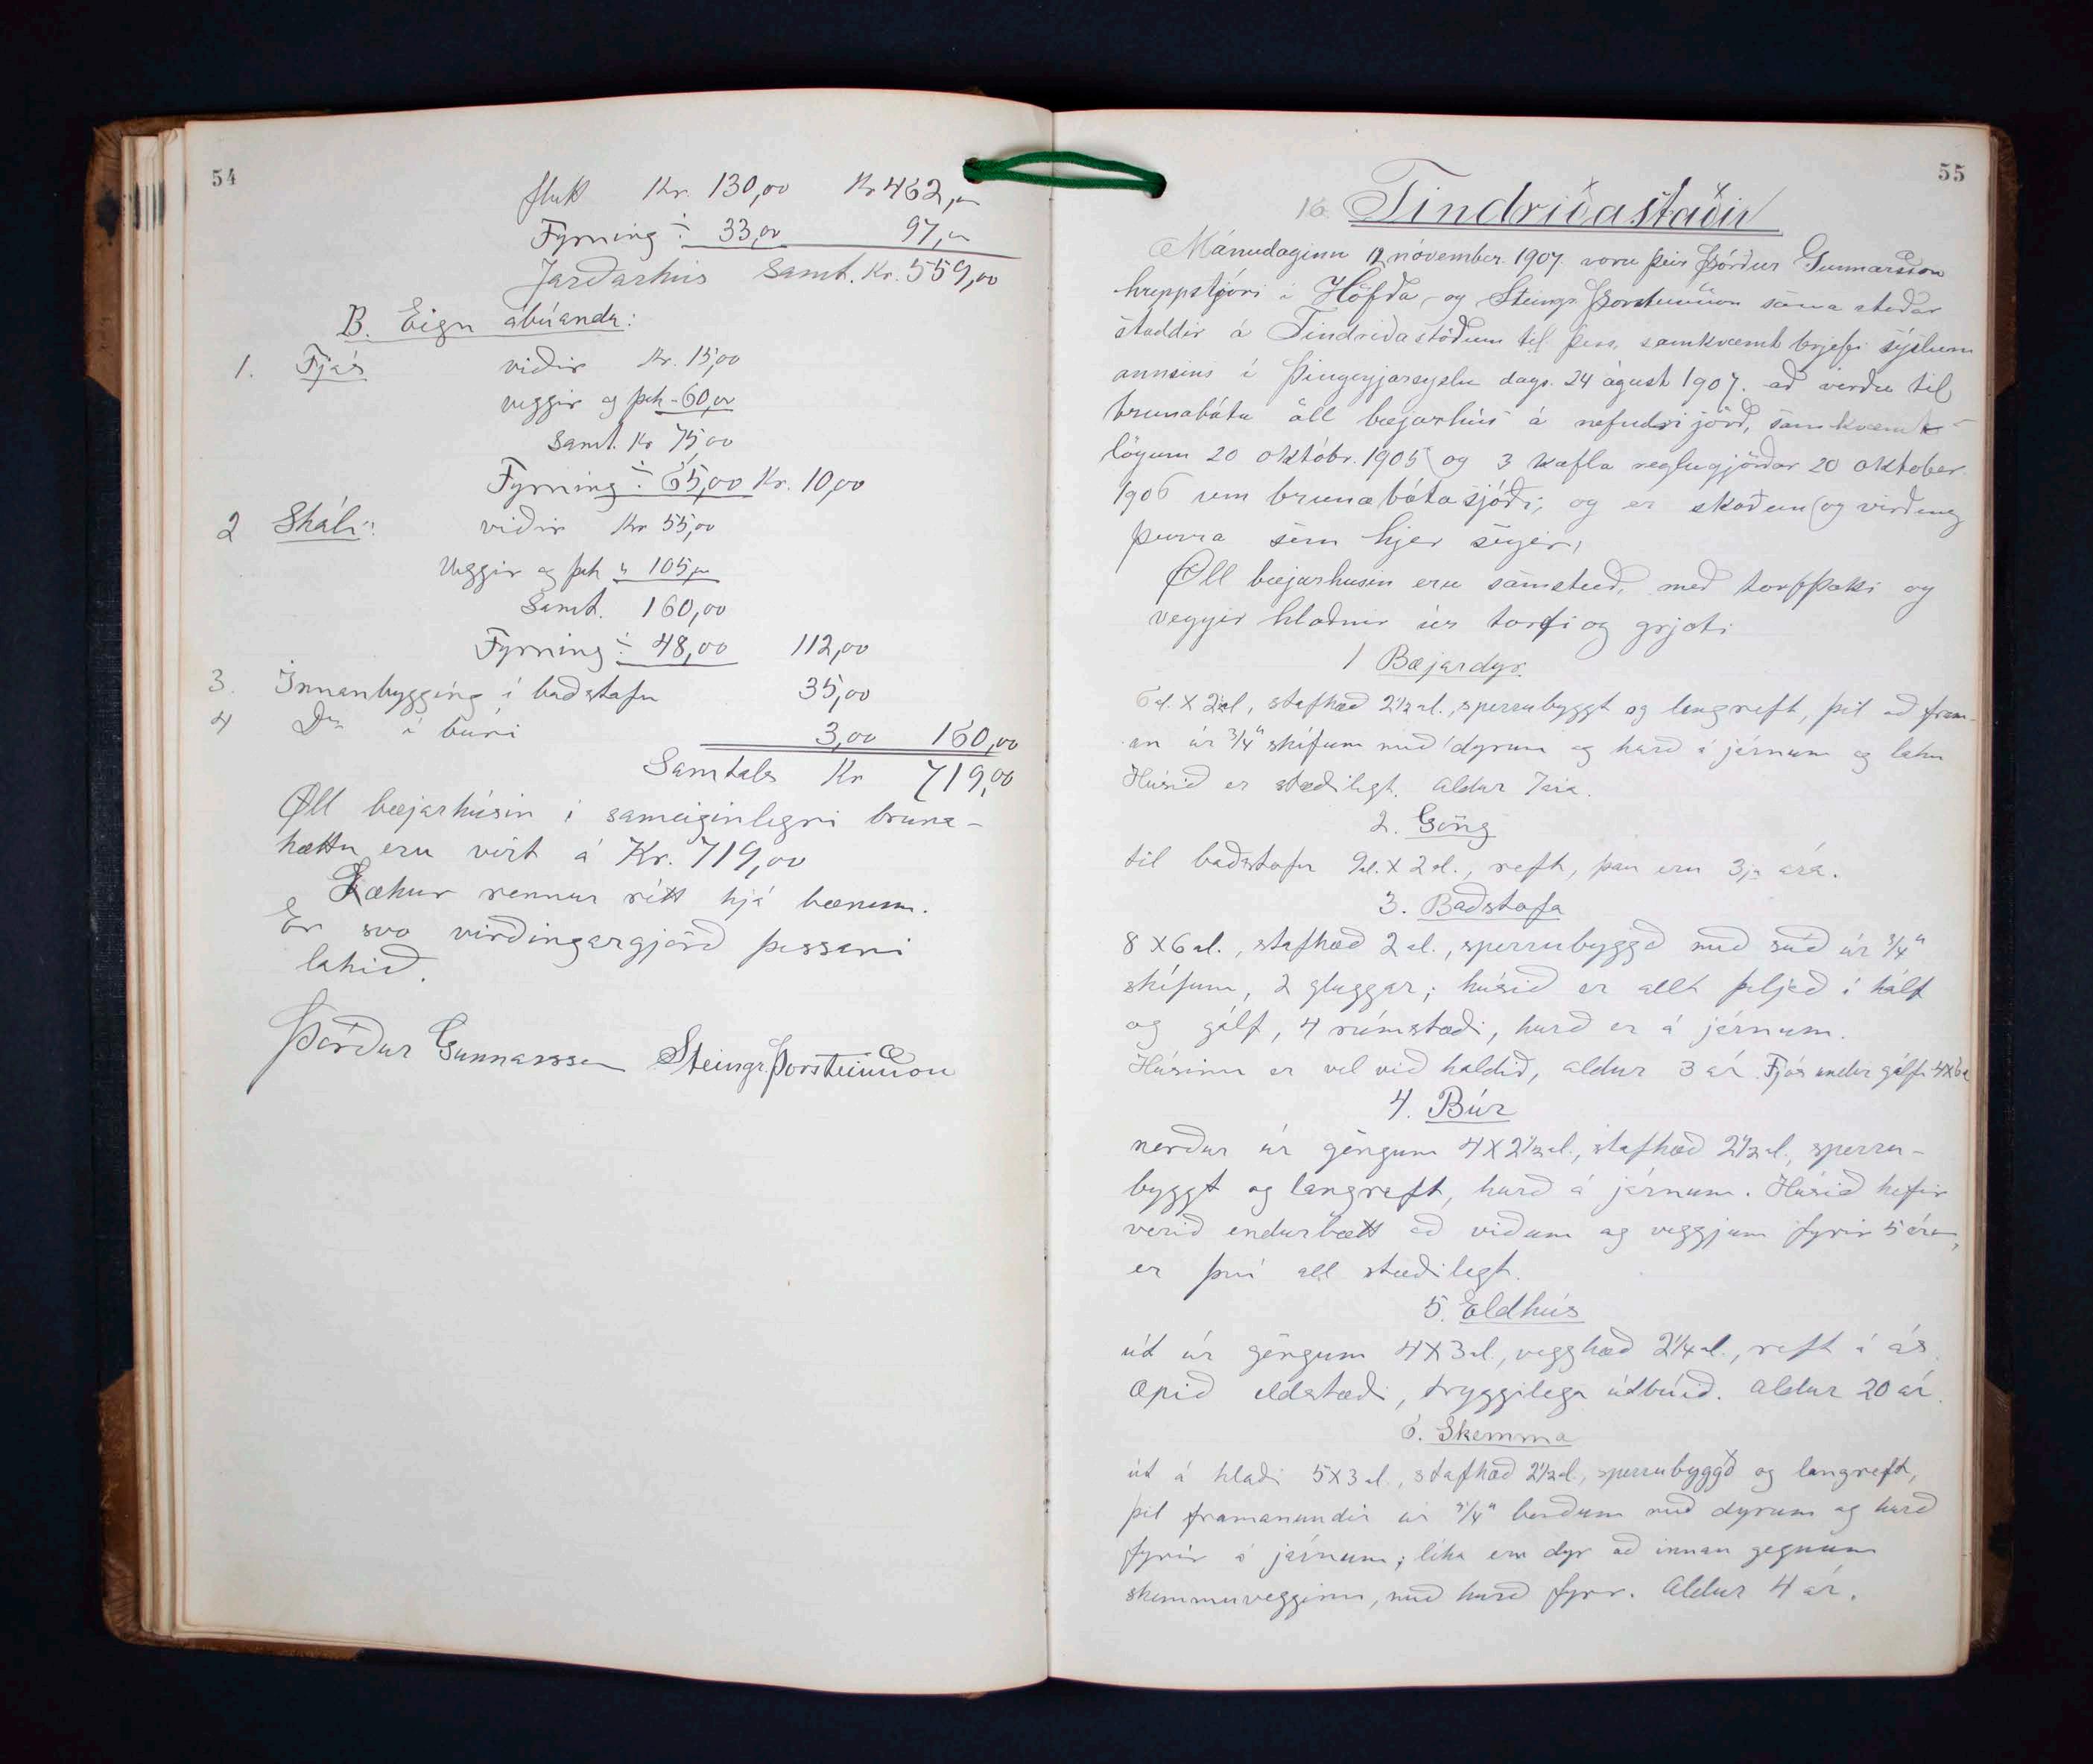 54
flutt Kr. 130,00 Kr 462,00
Fyrning ÷ 33,00 97,00
Jarðarhús Samt. Kr. 559,00
B. Eign ábúanda:
1. Fjós viðir Kr. 15,00
veggir og þak - 60,00
Samt. Kr 75,00
Fyrning ÷ 65,00 Kr. 10,00
2 Skáli: viðir Kr 55,00
Veggir og þak " 105,00
Samt. 160,00
Fyrning ÷ 48,00 112,00
3. Innanbygging í baðstofu 35,00
4 Do í búri 3,00 160,00
Samtals Kr 719,00
Öll bæjarhúsin í sameiginlegri bruna-
hættu eru virt á Kr. 719,00
Lækur rennur rétt hjá bænum.
Er svo virðingargjörð þessari
lokið.
Þórður Gunnarsson Steingr. Þorsteinsson
55
16. Tindriðastaðir
Mánudaginn nóvember. 1907. voru þeir Þórður Gunnarsson
hreppstjóri í Höfða, og Steingr. Þorsteinsson sama staðar
staddir á Tindriðastöðum til þess, samkvæmt brjefi sýslum
annsins í Þingeyjarsyslu dags. 24 ágúst 1907. að virða til
brunabóta öll bæjarhús á nefndri jörð, samkvæmt
lögum 20 októbr. 1905 og 3 kafla reglugjörðar 20 oktober
1906 um brunabótasjóði; og er skoðun og virðing
þeirra sem hjer segir,
Öll bæjarhusin eru sámstæð, með torfþaki og
veggir hlaðnir úr torfi og grjóti
1 Bæjardyr.
6 al. X 2½al, stafhæð 2½ al., sperrubyggt og langreft, þil að fram-
an úr ¾" skífum með dyrum og hurð á járnum og loku
Húsið er stæðilegt. Aldur 7 ára.
2. Göng
til baðstofu 9 al. X 2 al., reft, þau eru 3ja ára.
3. Baðstofa
8 X 6 al., stafhæð 2 al., sperrubyggð með súð úr ¾"
skífum, 2 gluggar; húsið er allt þiljað í hólf
og gólf, 4 rúmstæði, hurð er á járnum.
Húsinu er vel við haldið, aldur 3 ár. Fjós undir gólfi 4X6a
4. Búr
norður úr göngum 4 X 2½ al., stafhæð 2½ al., sperru-
byggt og langreft, hurð á járnum. Húsið hefir
verið endurbætt að viðum og veggjum fyrir 5 árum,
er því all stæðilegt.
5. Eldhús
út úr göngum 4X3 al., vegghæð 2¼ al., reft á ás.
Opið eldstæði, tryggilega útbúið. Aldur 20 ár.
6. Skemma
út á hlaði 5X3 al., stafhæð 2½ al., sperrubyggð og langreft,
þil framanundir úr borðum með dyrum og hurð
fyrir á járnum; líka eru dyr að innan gegnum
skemmuvegginn, með hurð fyrir. Aldur 4 ár.